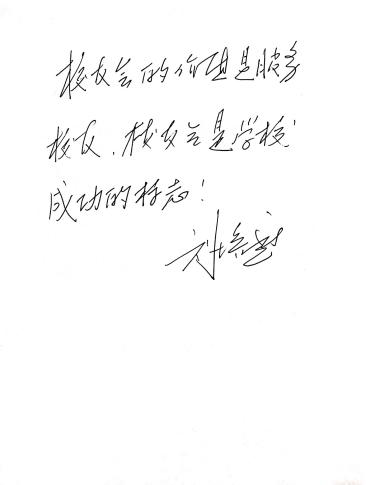 校友会的价值是服务
校友，校友会是学校
成功的标志！
刘